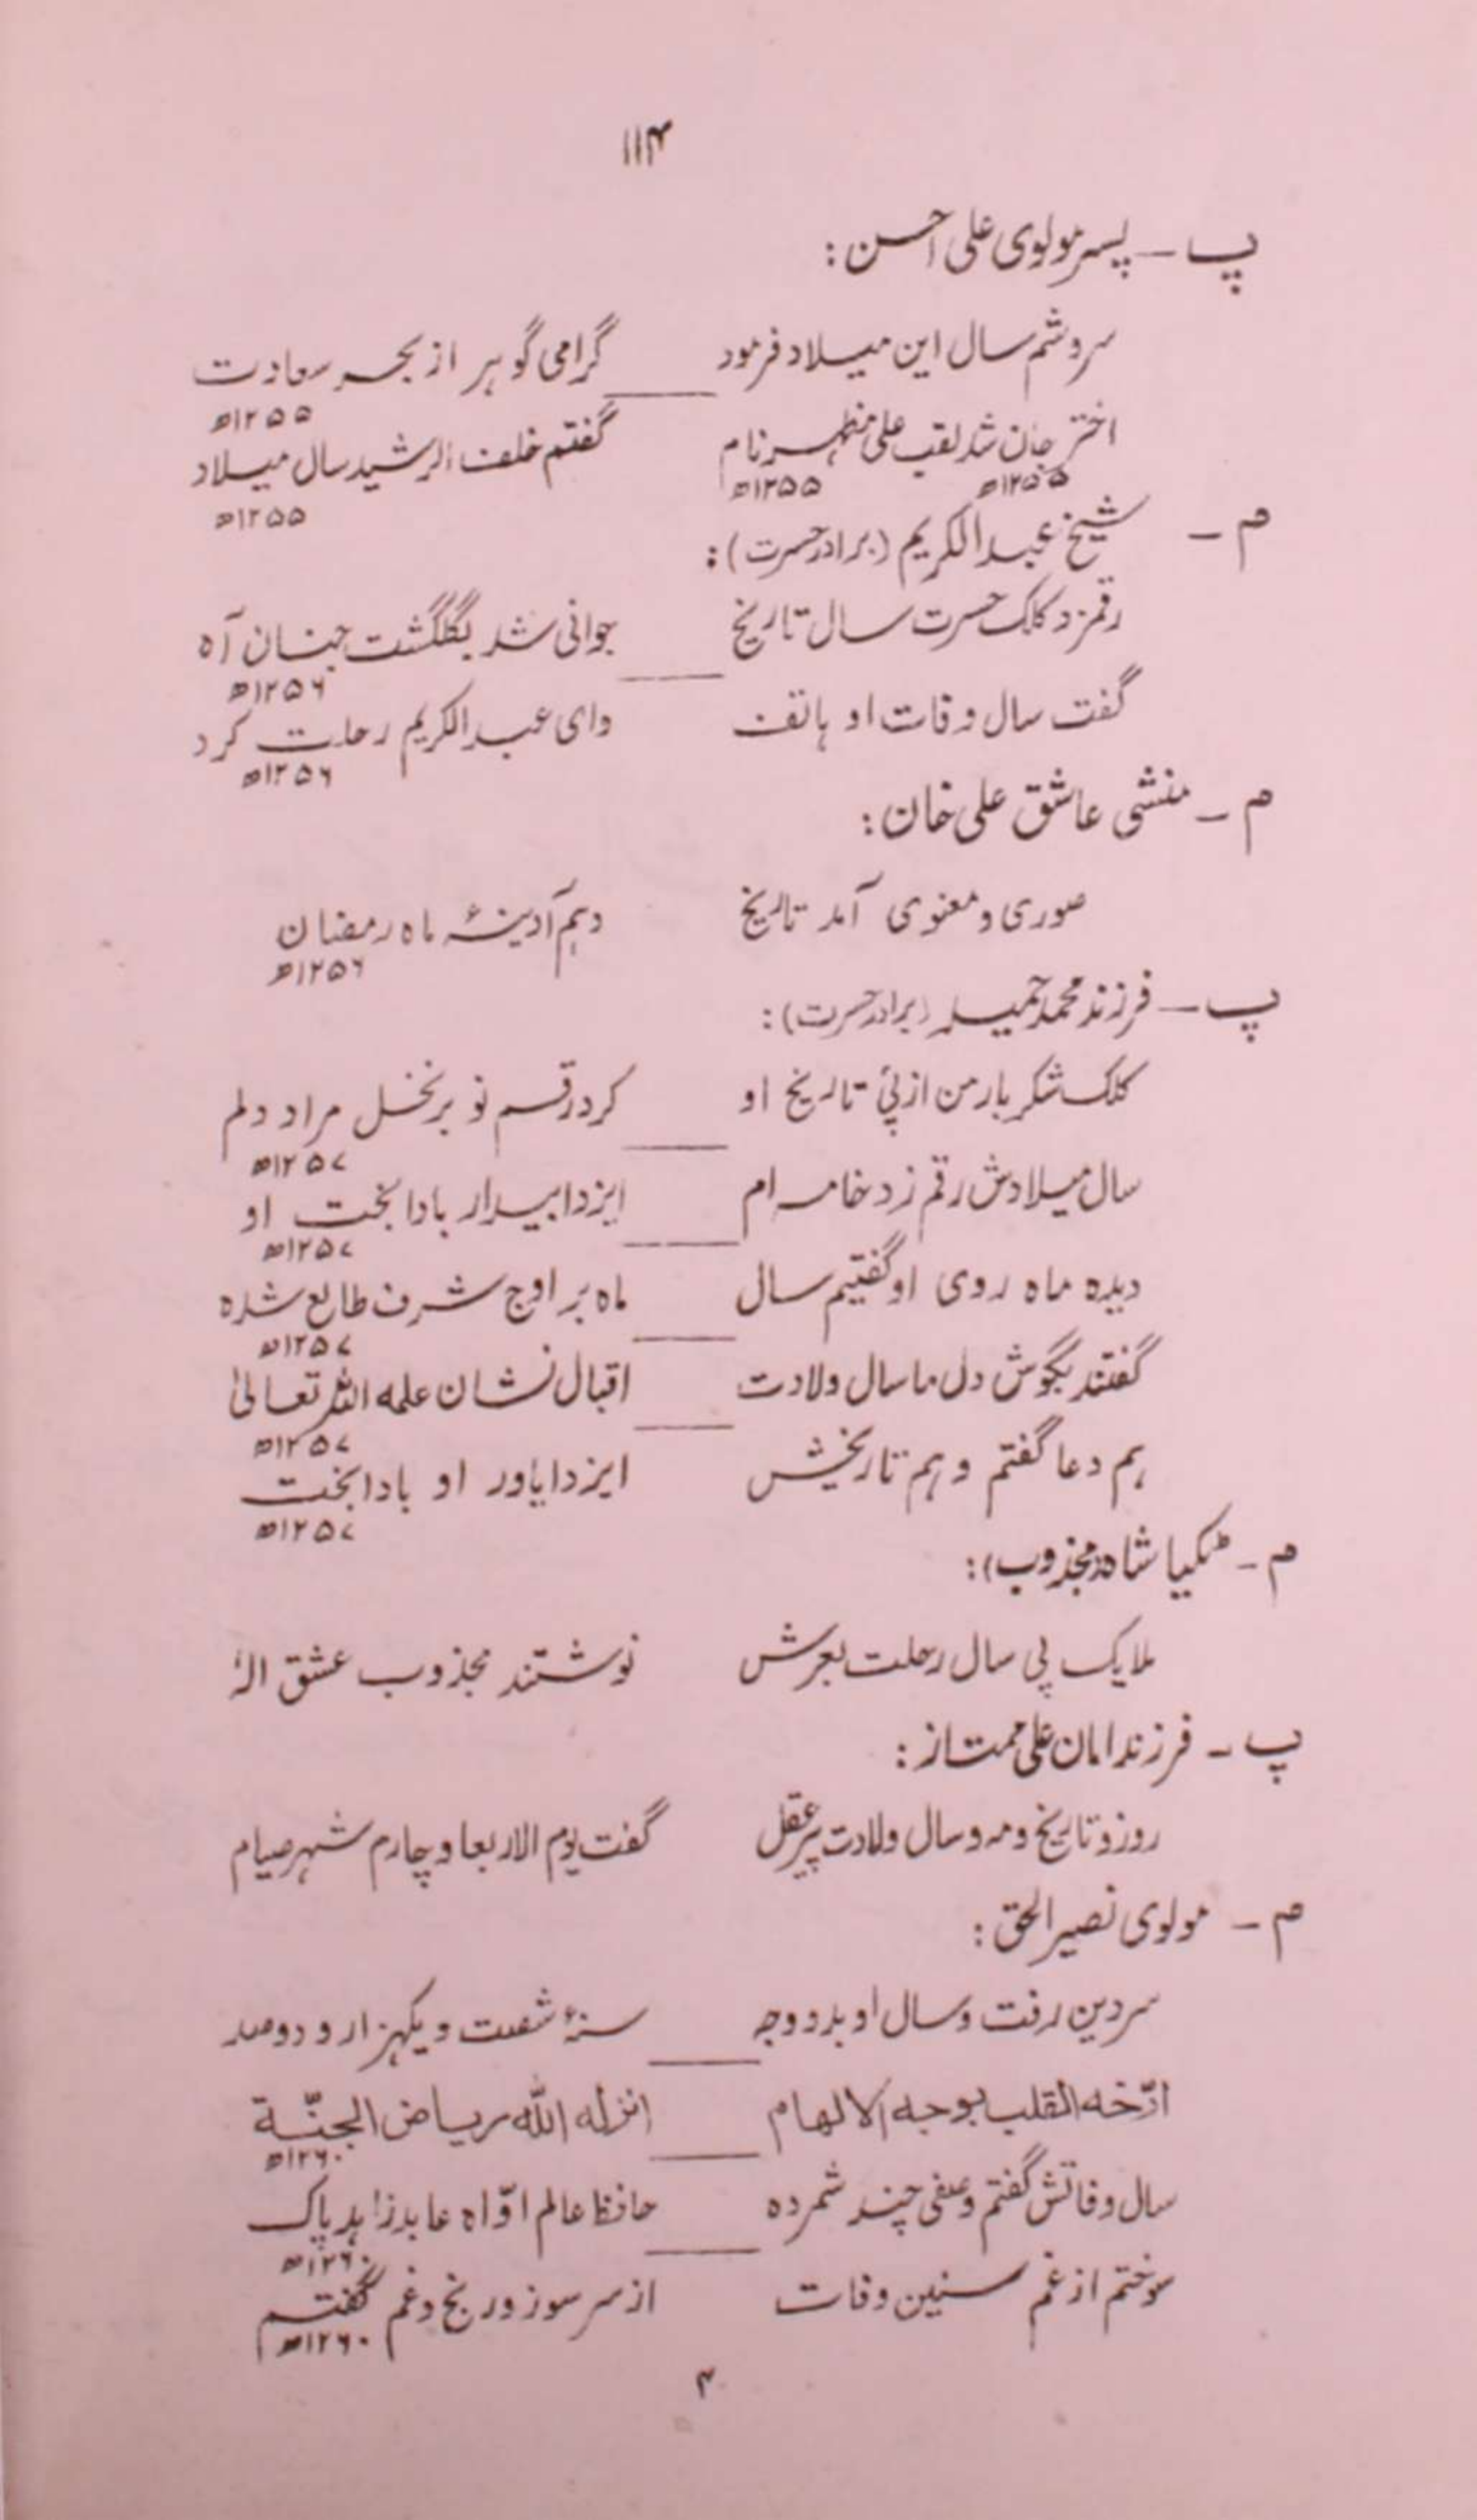 ۱۱۴
پ - پسر مولوی علی احسن:
سروشم سال این میلاد فرمود گرامی گوہر از بحر سعادت
۱۲۵۵ھ
اختر جان شد لقب علی مظہر نام گفتم خلف الرشید سال میلاد
۱۲۵۵ھ ۱۲۵۵ھ ۱۲۵۵ھ
م - شیخ عبدالکریم (برادر حسرت):
رقمزد کلک حسرت سال تاریخ جوانی شد بگلگشت جنان آہ
۱۲۵۶ھ
گفت سال وفات او ہاتف وای عبدالکریم رحلت کرد
۱۲۵۶ھ
م - منشی عاشق علی خان:
صوری و معنوی آمد تاریخ دہم آدینۂ ماہ رمضان
۱۲۵۶ھ
پ - فرزند محمد حمید (برادر حسرت):
کلک شکر بار من از پیٔ تاریخ او کرد رقم نو بر نخل مراد دلم
۱۲۵۷ھ
سال میلادش رقم زد خامہ ام ایزدا بیدار بادا بخت او
۱۲۵۷ھ
دیدہ ماہ روی او گفتیم سال ماہ بر اوج شرف طالع شدہ
۱۲۵۷ھ
گفتند بگوش دل ما سال ولادت اقبال نشان علمہ اللہ تعالیٰ
۱۲۵۷ھ
ہم دعا گفتم و ہم تاریخش ایزدا یاور او بادا بخت
۱۲۵۷ھ
م - شاہ (مجذوب):
ملایک پی سال رحلت بعرش نوشتند مجذوب عشق الہٰ
پ - فرزند امان علی ممتاز:
روز و تاریخ و مہ و سال ولادت پیر عقل گفت یوم الاربعا و چارم شہر صیام
م - مولوی نصیر الحق:
سر دین رفت و سال او بدو وجہ سنۂ شصت و یکہزار و دو صد
ارّخه القلب بوجه الالهام انزله الله رياض الجنّة
۱۲۶۰ھ
سال وفاتش گفتم وصفی چند شمردہ حافظ عالم اوّاہ عابد زاہد پاک
۱۲۶۰ھ
سوختم از غم سنین وفات از سر سوز و رنج و غم گفتم
۱۲۶۰ھ
۴